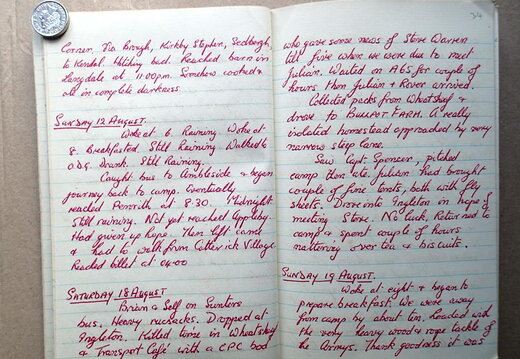 Corner, Via Brough, Kirkby Stephen, Sedbergh,
to Kendal. Hitching bad. Reached barn in
Langdale at 11.00pm. Somehow cooked &
ate in complete darkness.
SUNDAY 12 AUGUST.
Woke at 6. Raining. Woke at
8. Breakfasted. Still Raining. Walked to
O.D.G. Drank. Still Raining.
Caught bus to Ambleside & began
journey back to camp. Eventually
reached Penrith at 8.30. Midnight
still raining. Not yet reached Appleby.
Had given up hope. Then lift came
& had to walk from Catterick Village.
Reached billet at 04.00
SATURDAY 18 AUGUST
Brian & Self on Sunters
bus. Heavy rucksacks. Dropped at
Ingleton. Killed time in Wheatsheaf
& Transport Café with a CPC bod
34
who gave some news of Steve Warren
till five when we were due to meet
Julian. Waited on A65 for couple of
hours then Julian & Rover arrived.
Collected packs from Wheatsheaf &
drove to BULLPOT FARM. A really
isolated homestead approached by very
narrow steep lane.
Saw Capt. Spencer, pitched
camp then ate. Julian had brought
couple of fine tents, both with fly
sheets. Drove into Ingleton in hope of
meeting Steve. No luck. Returned to
camp & spent couple of hours
nattering over tea & biscuits.
SUNDAY 19 AUGUST.
Woke at eight & began to
prepare breakfast. We were away
from camp by about ten, loaded with
the very heavy wood & rope tackle of
the Army's. Thank goodness it was